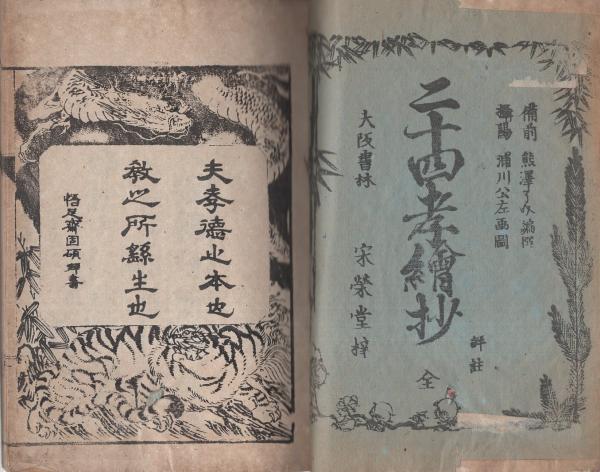 備前 熊澤了介
攝陽 浦川公左画圖
二十四孝繪抄
評註
全
大阪書林 宋榮堂梓
夫孝德之本也
教之所繇生也
書